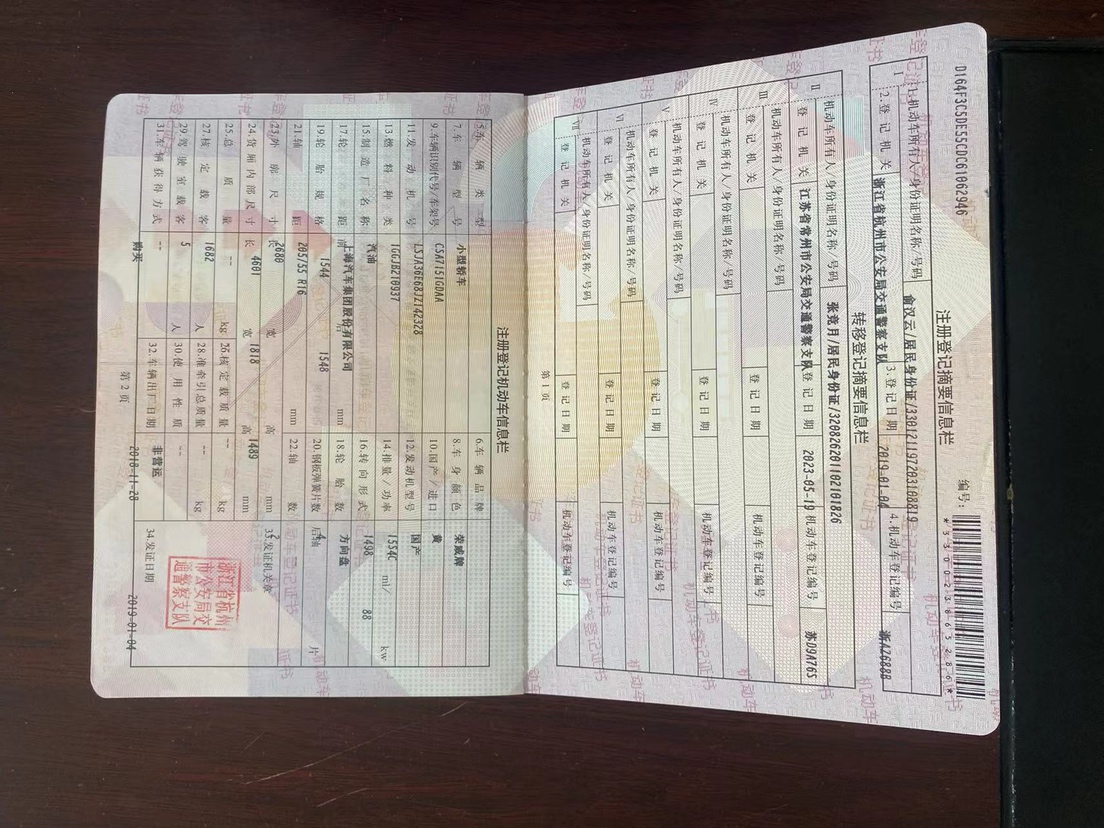 D164F3C5DE55CDC61062946
注册登记摘要信息栏
编号:
*330023865286*
I
1.机动车所有人/身份证明名称/号码
俞汉云/居民身份证/330121197203100819
2.登记机关
浙江省杭州市公安局交通警察支队
3.登记日期
2019-01-04
4.机动车登记编号
浙AZ6888
转移登记摘要信息栏
II
机动车所有人/身份证明名称/号码
张竞月/居民身份证/320826201102101826
登记机关
江苏省常州市公安局交通警察支队
登记日期
2023-05-19
机动车登记编号
苏D9A76S
III
机动车所有人/身份证明名称/号码
登记机关
登记日期
机动车登记编号
IV
机动车所有人/身份证明名称/号码
登记机关
登记日期
机动车登记编号
V
机动车所有人/身份证明名称/号码
登记机关
登记日期
机动车登记编号
VI
机动车所有人/身份证明名称/号码
登记机关
登记日期
机动车登记编号
VII
机动车所有人/身份证明名称/号码
登记机关
登记日期
机动车登记编号
第1页
注册登记机动车信息栏
5.车辆类型 小型轿车 6.车辆品牌 荣威牌
7.车辆型号 CSA7151GDAA 8.车身颜色 黄
9.车辆识别代号/车架号 LSJA36E68JZ142328 10.国产/进口 国产
11.发动机号 1GGJB210937 12.发动机型号 15S4C
13.燃料种类 汽油 14.排量/功率 1498 ml/ 88 kw
15.制造厂名称 上海汽车集团股份有限公司 16.转向形式 方向盘
17.轮距 前 1544 后 1548 mm 18.轮胎数 4
19.轮胎规格 205/55 R16 20.钢板弹簧片数 后轴 片
21.轴距 2680 mm 22.轴数
23.外廓尺寸 长 4601 宽 1818 高 1489 mm
33.发证机关章
浙江省杭州市公安局交通警察支队
24.货厢内部尺寸 长 -- 宽 高 mm
25.总质量 1682 kg 26.核定载质量 -- kg
27.核定载客 5 人 28.准牵引总质量 -- kg
29.驾驶室载客 -- 人 30.使用性质 非营运
31.车辆获得方式 购买 32.车辆出厂日期 2018-11-28
34.发证日期 2019-01-04
第2页